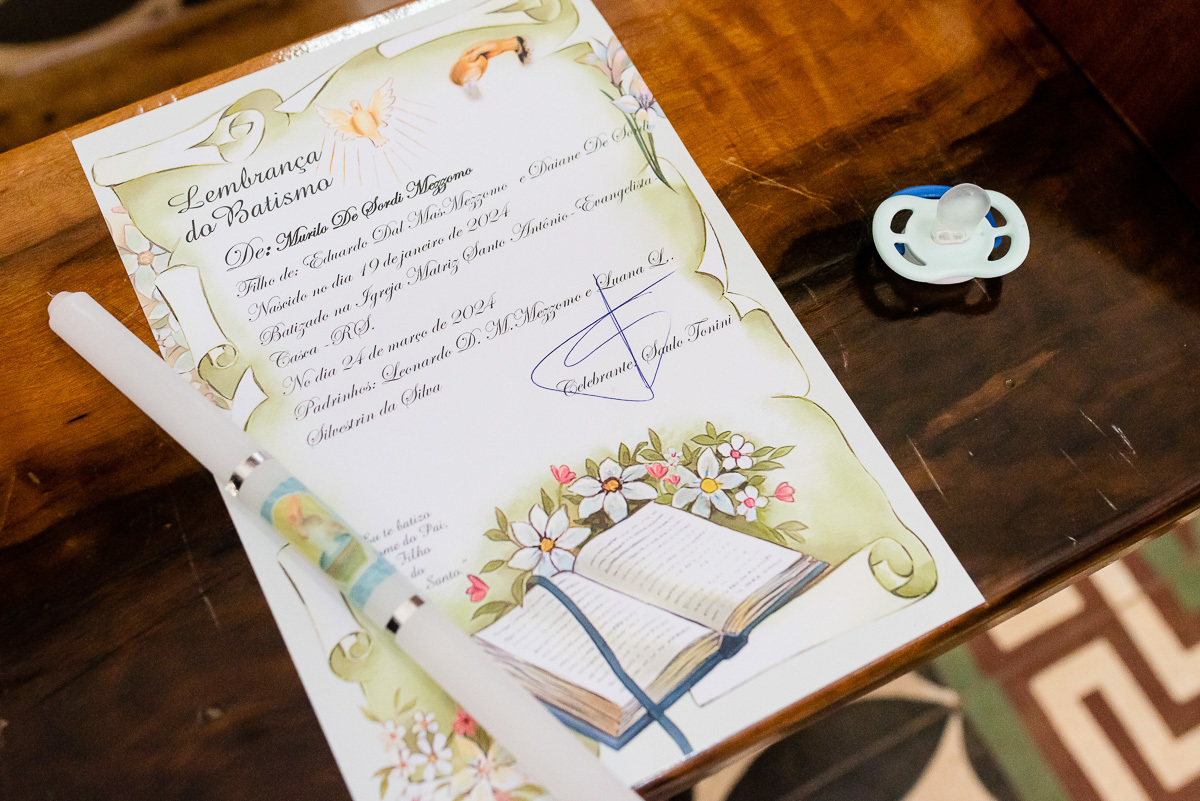 Lembrança
do Batismo
De: Murilo De Sordi Mezzomo
Filho de: Eduardo Dal Mas Mezzomo e Daiane De Sordi
Nascido no dia 19 de janeiro de 2024
Batizado na Igreja Matriz Santo Antônio - Evangelista
Casca - RS.
No dia 24 de março de 2024
Padrinhos: Leonardo D. M. Mezzomo e Luana L..
Silvestrin da Silva
Celebrante: Saulo Tonini
Eu te batizo
do Pai,
Filho
do
Santo."